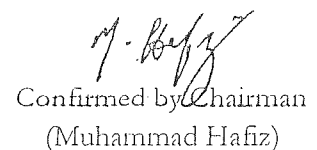 M. Hafiz
Confirmed by Chairman
(Muhammad Hafiz)